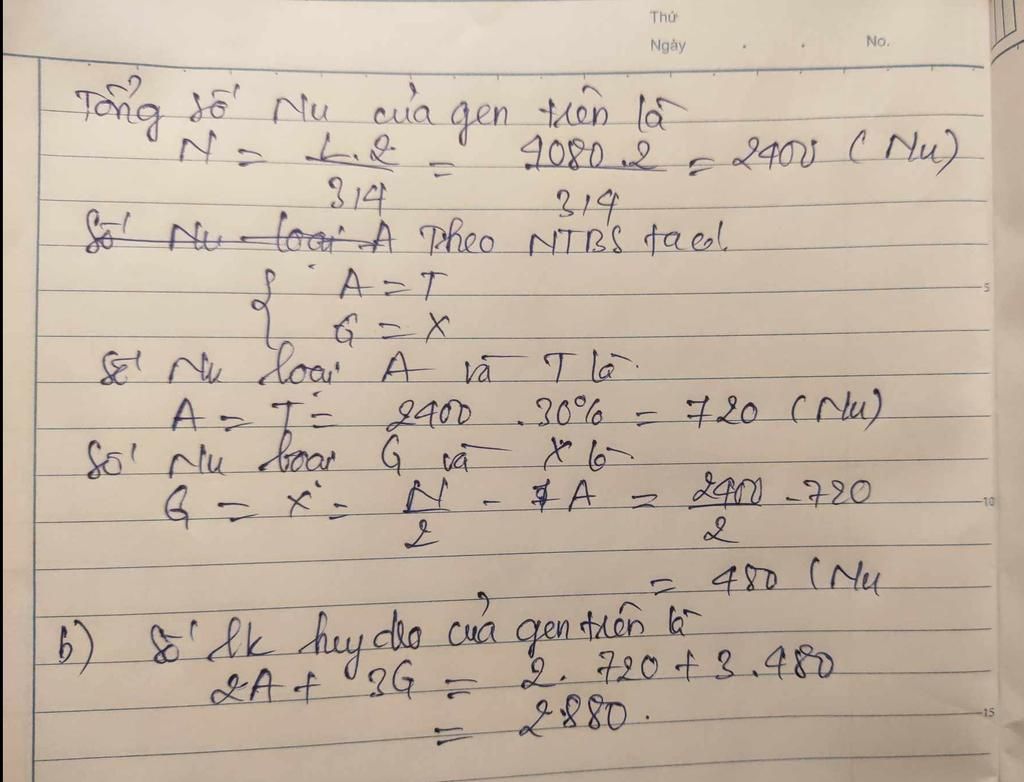 Thứ
Ngày . . No.
Tổng số Nu của gen trên là
N = L.2/3,4 = 4080.2/3,4 = 2400 (Nu)
Số Nu loại A Theo NTBS ta có
{ A = T
G = X
5
Số Nu loại A và T là.
A = T = 2400 .30% = 720 (Nu)
Số Nu loại G và X là
G = X = N/2 - A = 2400/2 - 720
10
= 480 (Nu
b) Số lk huydro của gen trên là
2A + 3G = 2. 720 + 3.480
= 2880.
15